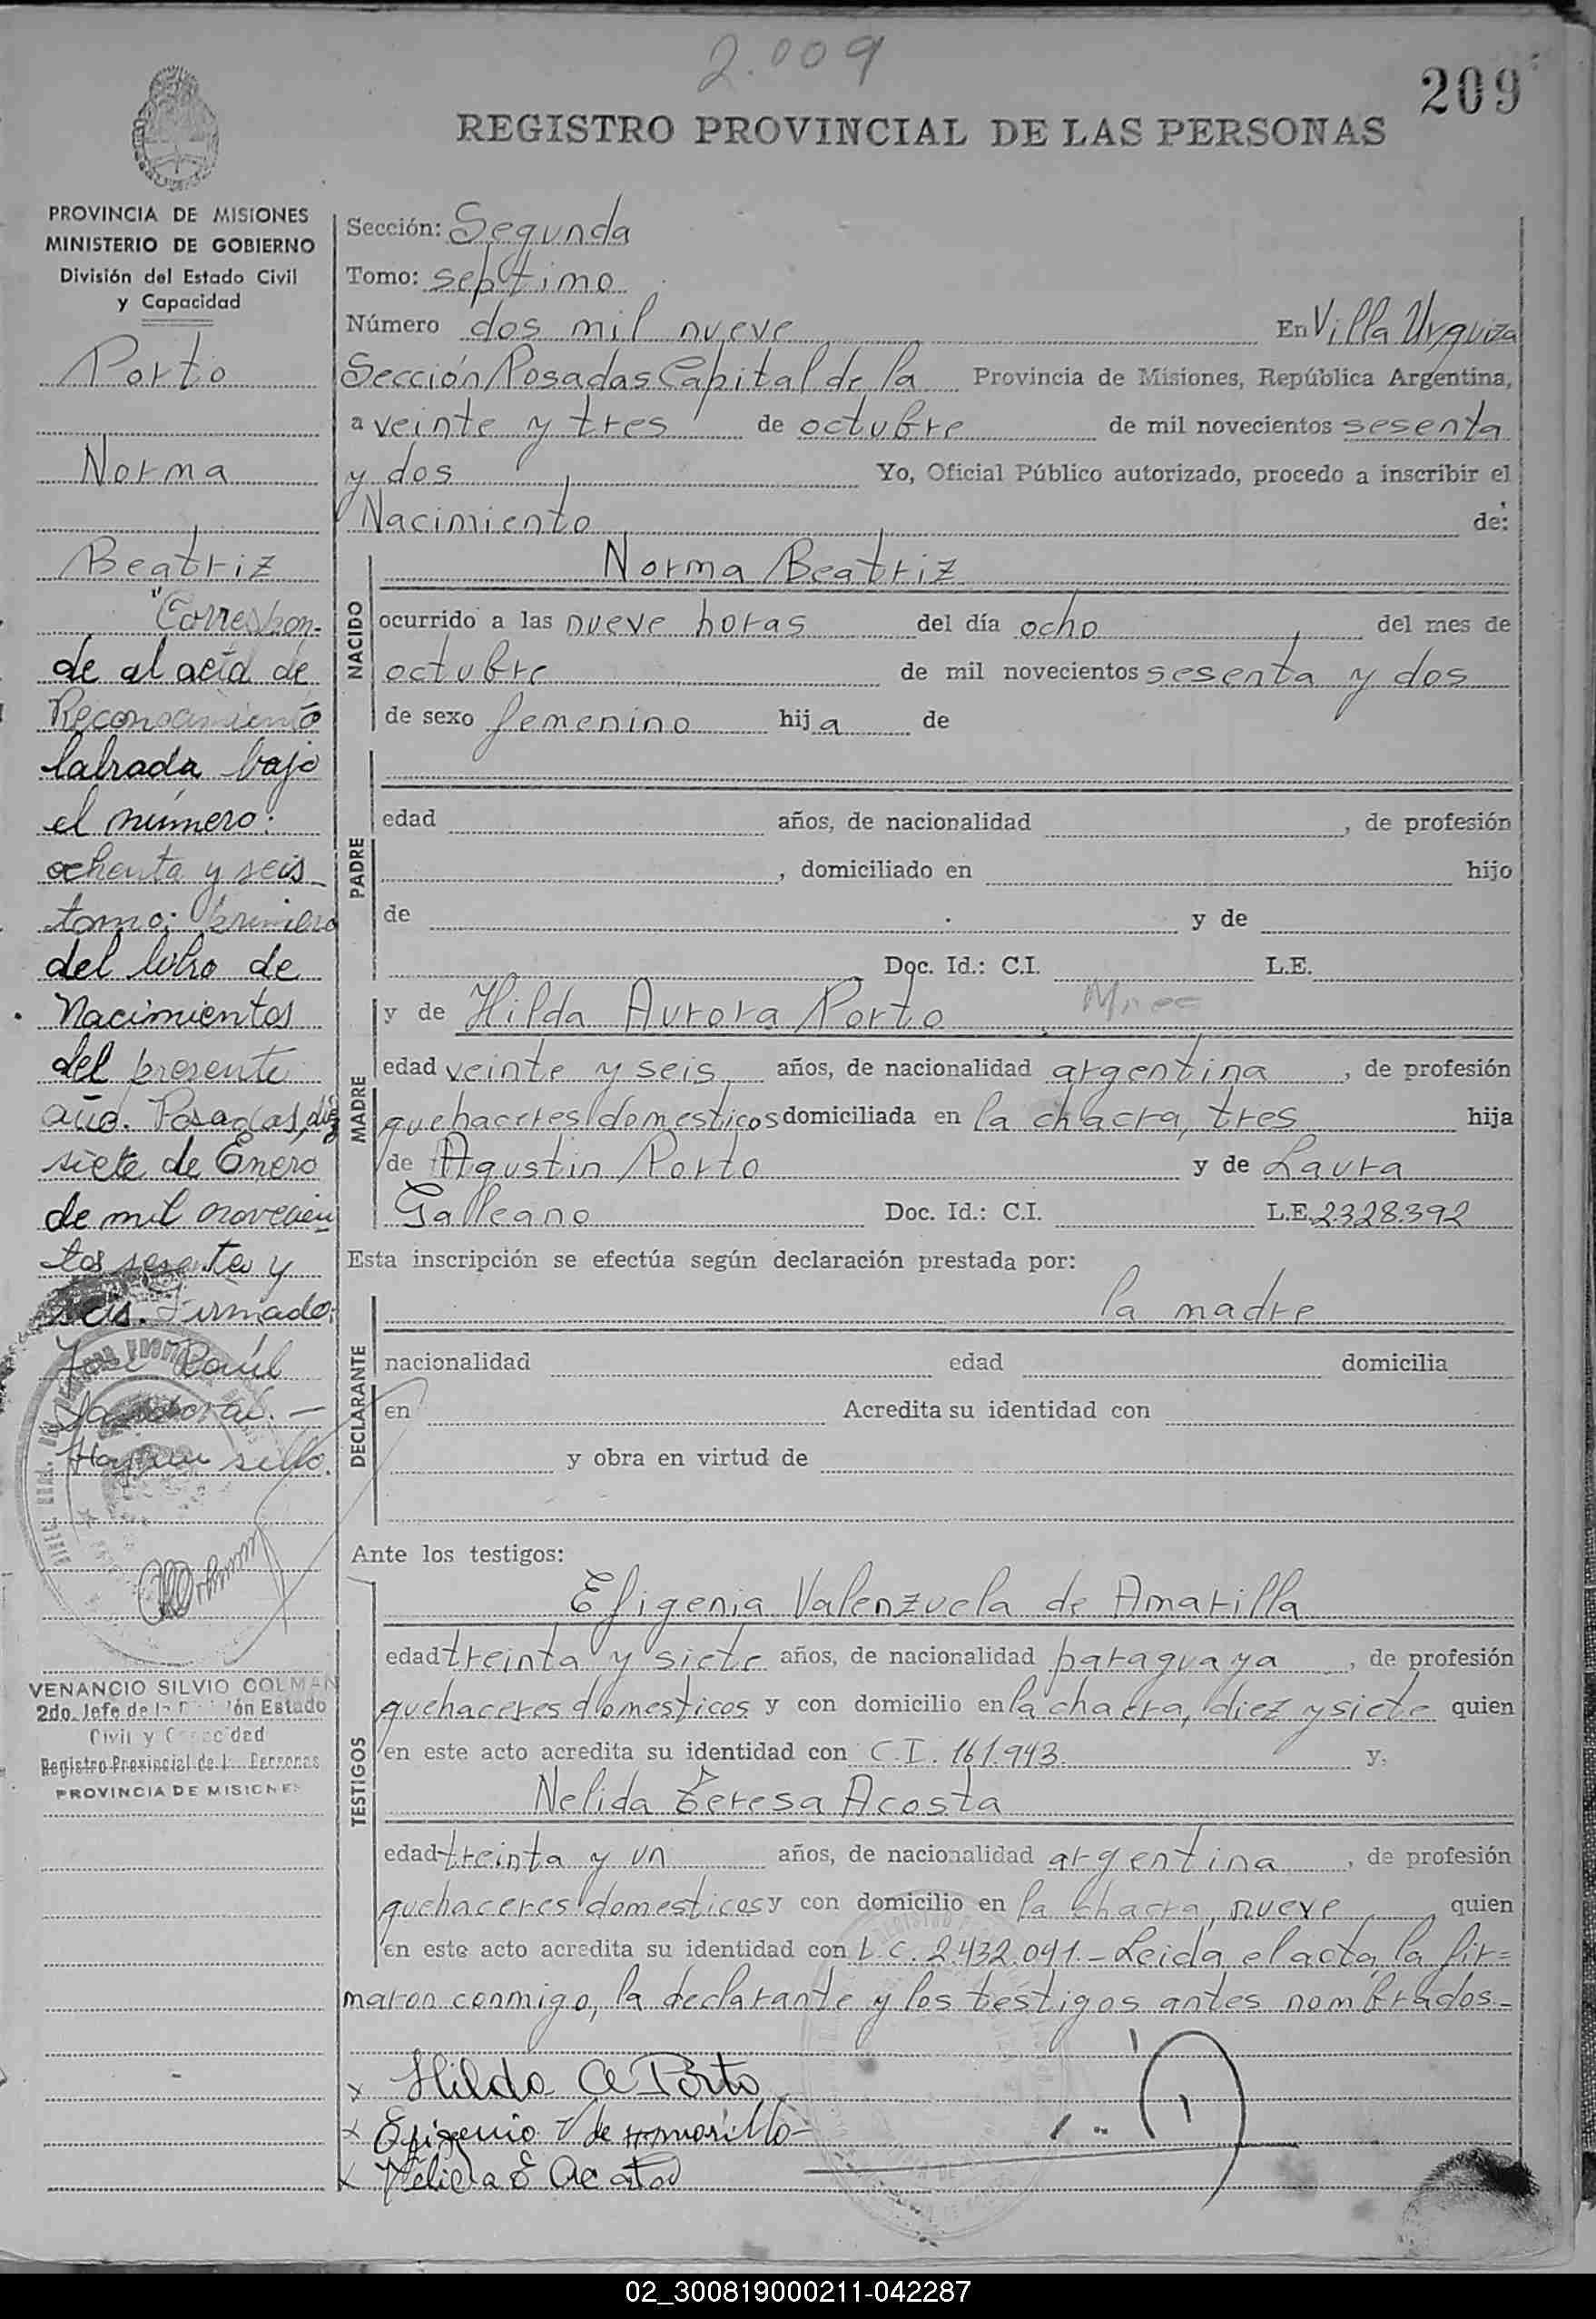 2.009
209
REGISTRO PROVINCIAL DE LAS PERSONAS
PROVINCIA DE MISIONES
MINISTERIO DE GOBIERNO
División del Estado Civil
y Capacidad
Porto
Norma
Beatriz
"Correspon-
de al acta de
Reconocimiento
labrada bajo
el número:
ochenta y seis
tomo: primero
del libro de
Nacimientos
del presente
año. Posadas, diez
siete de Enero
de mil novecien
tos sesenta y
seis. Firmado:
José Raúl
Hay un sello.
VENANCIO SILVIO COLMAN
2do. Jefe de la División Estado
Civil y Capacidad
Registro Provincial de las Personas
PROVINCIA DE MISIONES
Sección: Segunda
Tomo: septimo
Número dos mil nueve En Villa Urquiza
Sección Posadas Capital de la Provincia de Misiones, República Argentina,
a veinte y tres de octubre de mil novecientos sesenta
y dos Yo, Oficial Público autorizado, procedo a inscribir el
Nacimiento de:
NACIDO
Norma Beatriz
ocurrido a las nueve horas del día ocho del mes de
octubre de mil novecientos sesenta y dos
de sexo femenino hija de
PADRE
edad años, de nacionalidad , de profesión
, domiciliado en hijo
de y de
Doc. Id.: C.I. L.E.
MADRE
y de Hilda Aurora Porto
edad veinte y seis años, de nacionalidad argentina, de profesión
quehaceres domesticos domiciliada en la chacra, tres hija
de Agustin Porto y de Laura
Galleano Doc. Id.: C.I. L.E. 2.328.392
Esta inscripción se efectúa según declaración prestada por:
DECLARANTE
la madre
nacionalidad edad domicilia
en Acredita su identidad con
y obra en virtud de
Ante los testigos:
TESTIGOS
Efigenia Valenzuela de Amarilla
edad treinta y siete años, de nacionalidad paraguaya, de profesión
quehaceres domesticos y con domicilio en la chacra, diez y siete quien
en este acto acredita su identidad con C.I. 161.943. y,
Nelida Teresa Acosta
edad treinta y un años, de nacionalidad argentina, de profesión
quehaceres domesticos y con domicilio en la chacra, nueve quien
en este acto acredita su identidad con L.C. 2.432.041.- Leida el acta, la fir=
maron conmigo, la declarante y los testigos antes nombrados-
x Hilda A Porto
x Efigenia V de Amarilla
x Nelida E Acosta
02_300819000211-042287